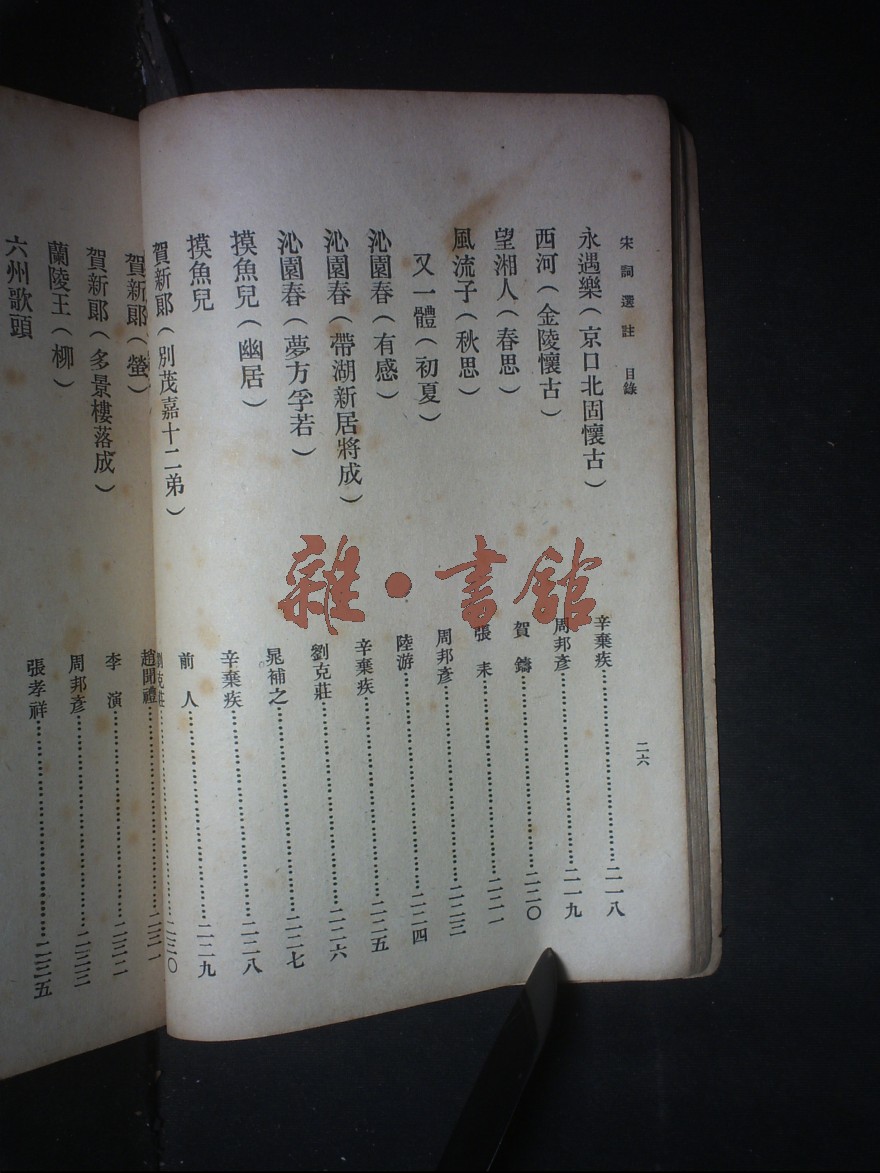 宋詞選註 目錄 二六
永遇樂(京口北固懷古) 辛棄疾……二一八
西河(金陵懷古) 周邦彥……二一九
望湘人(春思) 賀鑄……二二〇
風流子(秋思) 張耒……二二一
又一體(初夏) 周邦彥……二二三
沁園春(有感) 陸游……二二四
沁園春(帶湖新居將成) 辛棄疾……二二五
沁園春(夢方孚若) 劉克莊……二二六
摸魚兒(幽居) 晁補之……二二七
摸魚兒 辛棄疾……二二八
賀新郞(別茂嘉十二弟) 前人……二二九
劉克莊……二三〇
賀新郞(螢) 趙聞禮……二三一
賀新郞(多景樓落成) 李演……二三二
蘭陵王(柳) 周邦彥……二三三
六州歌頭 張孝祥……二三五
雜·書館